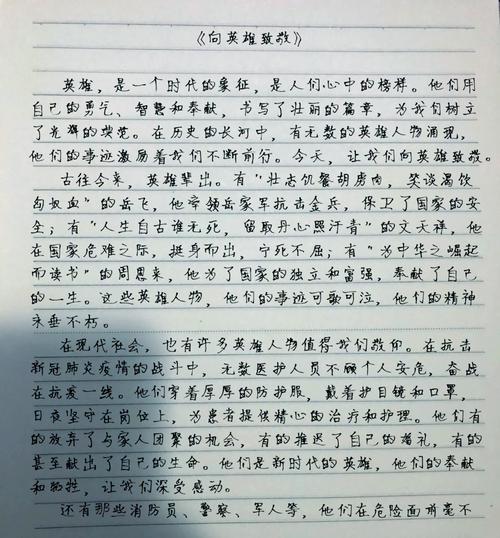 《向英雄致敬》
英雄，是一个时代的象征，是人们心中的榜样。他们用
自己的勇气、智慧和奉献，书写了壮丽的篇章，为我们树立
了光辉的典范。在历史的长河中，有无数的英雄人物涌现，
他们的事迹激励着我们不断前行。今天，让我们向英雄致敬。
古往今来，英雄辈出。有“壮志饥餐胡虏肉，笑谈渴饮
匈奴血”的岳飞，他率领岳家军抗击金兵，保卫了国家的安
全；有“人生自古谁无死，留取丹心照汗青”的文天祥，他
在国家危难之际，挺身而出，宁死不屈；有“为中华之崛起
而读书”的周恩来，他为了国家的独立和富强，奉献了自己
的一生。这些英雄人物，他们的事迹可歌可泣，他们的精神
永垂不朽。
在现代社会，也有许多英雄人物值得我们敬仰。在抗击
新冠肺炎疫情的战斗中，无数医护人员不顾个人安危，奋战
在抗疫一线。他们穿着厚厚的防护服，戴着护目镜和口罩，
日夜坚守在岗位上，为患者提供精心的治疗和护理。他们有
的放弃了与家人团聚的机会，有的推迟了自己的婚礼，有的
甚至献出了自己的生命。他们是新时代的英雄，他们的奉献
和牺牲，让我们深受感动。
还有那些消防员、警察、军人等，他们在危险面前毫不